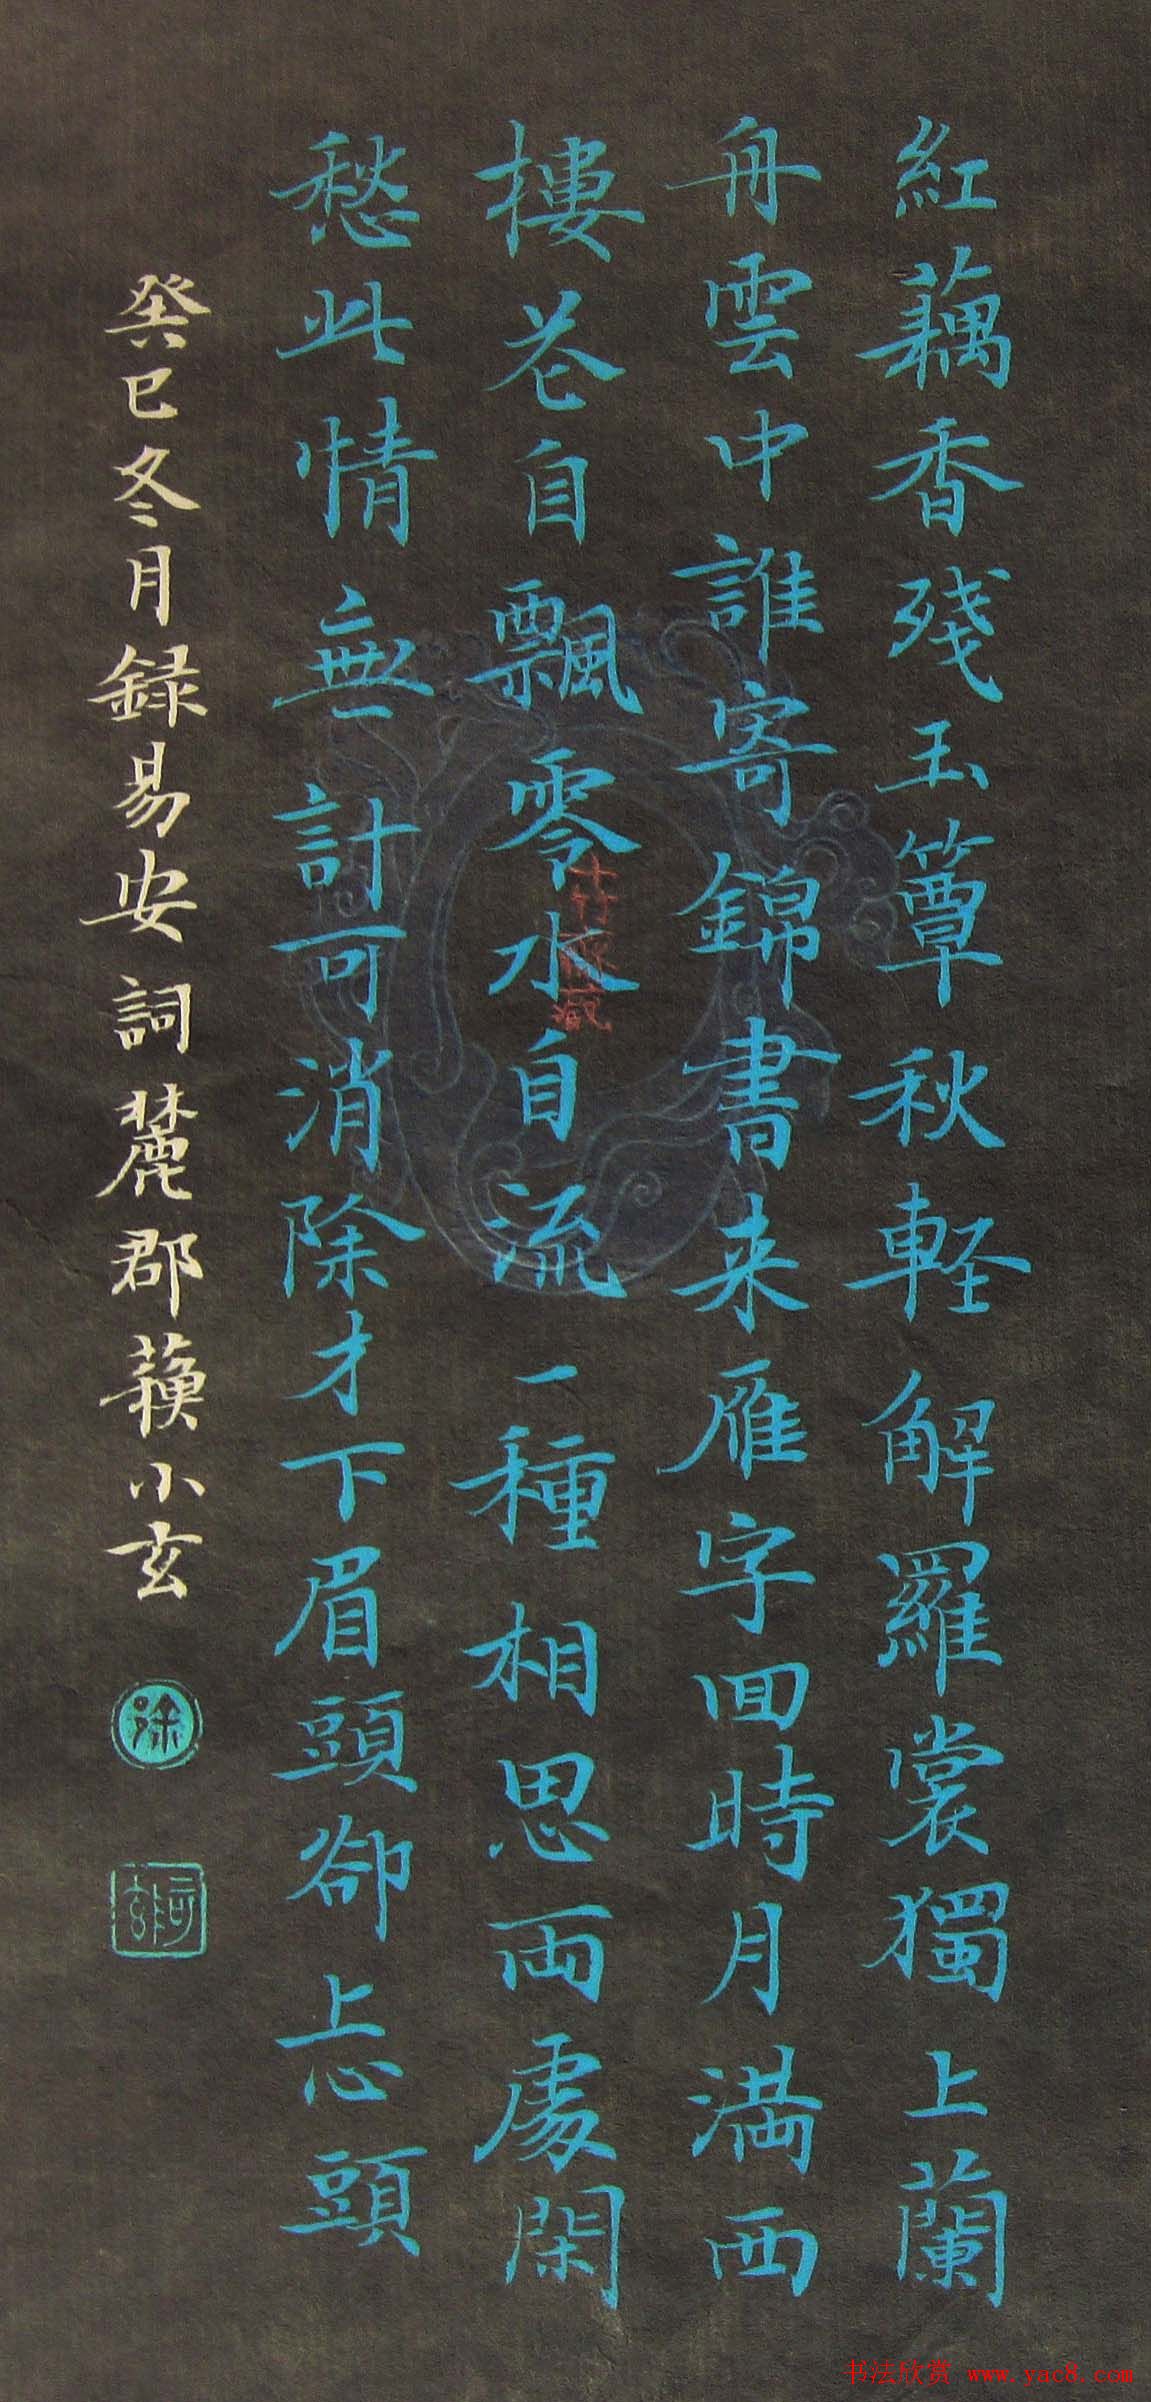 紅藕香殘玉簟秋軽解羅裳獨上蘭
舟雲中誰寄錦書来雁字回時月満西
樓花自飄零水自流一種相思両處閑
愁此情無計可消除才下眉頭卻上心頭
癸巳冬月録易安詞麓郡蘓小玄
十竹齋藏
徐
书法欣赏 www.yac8.com